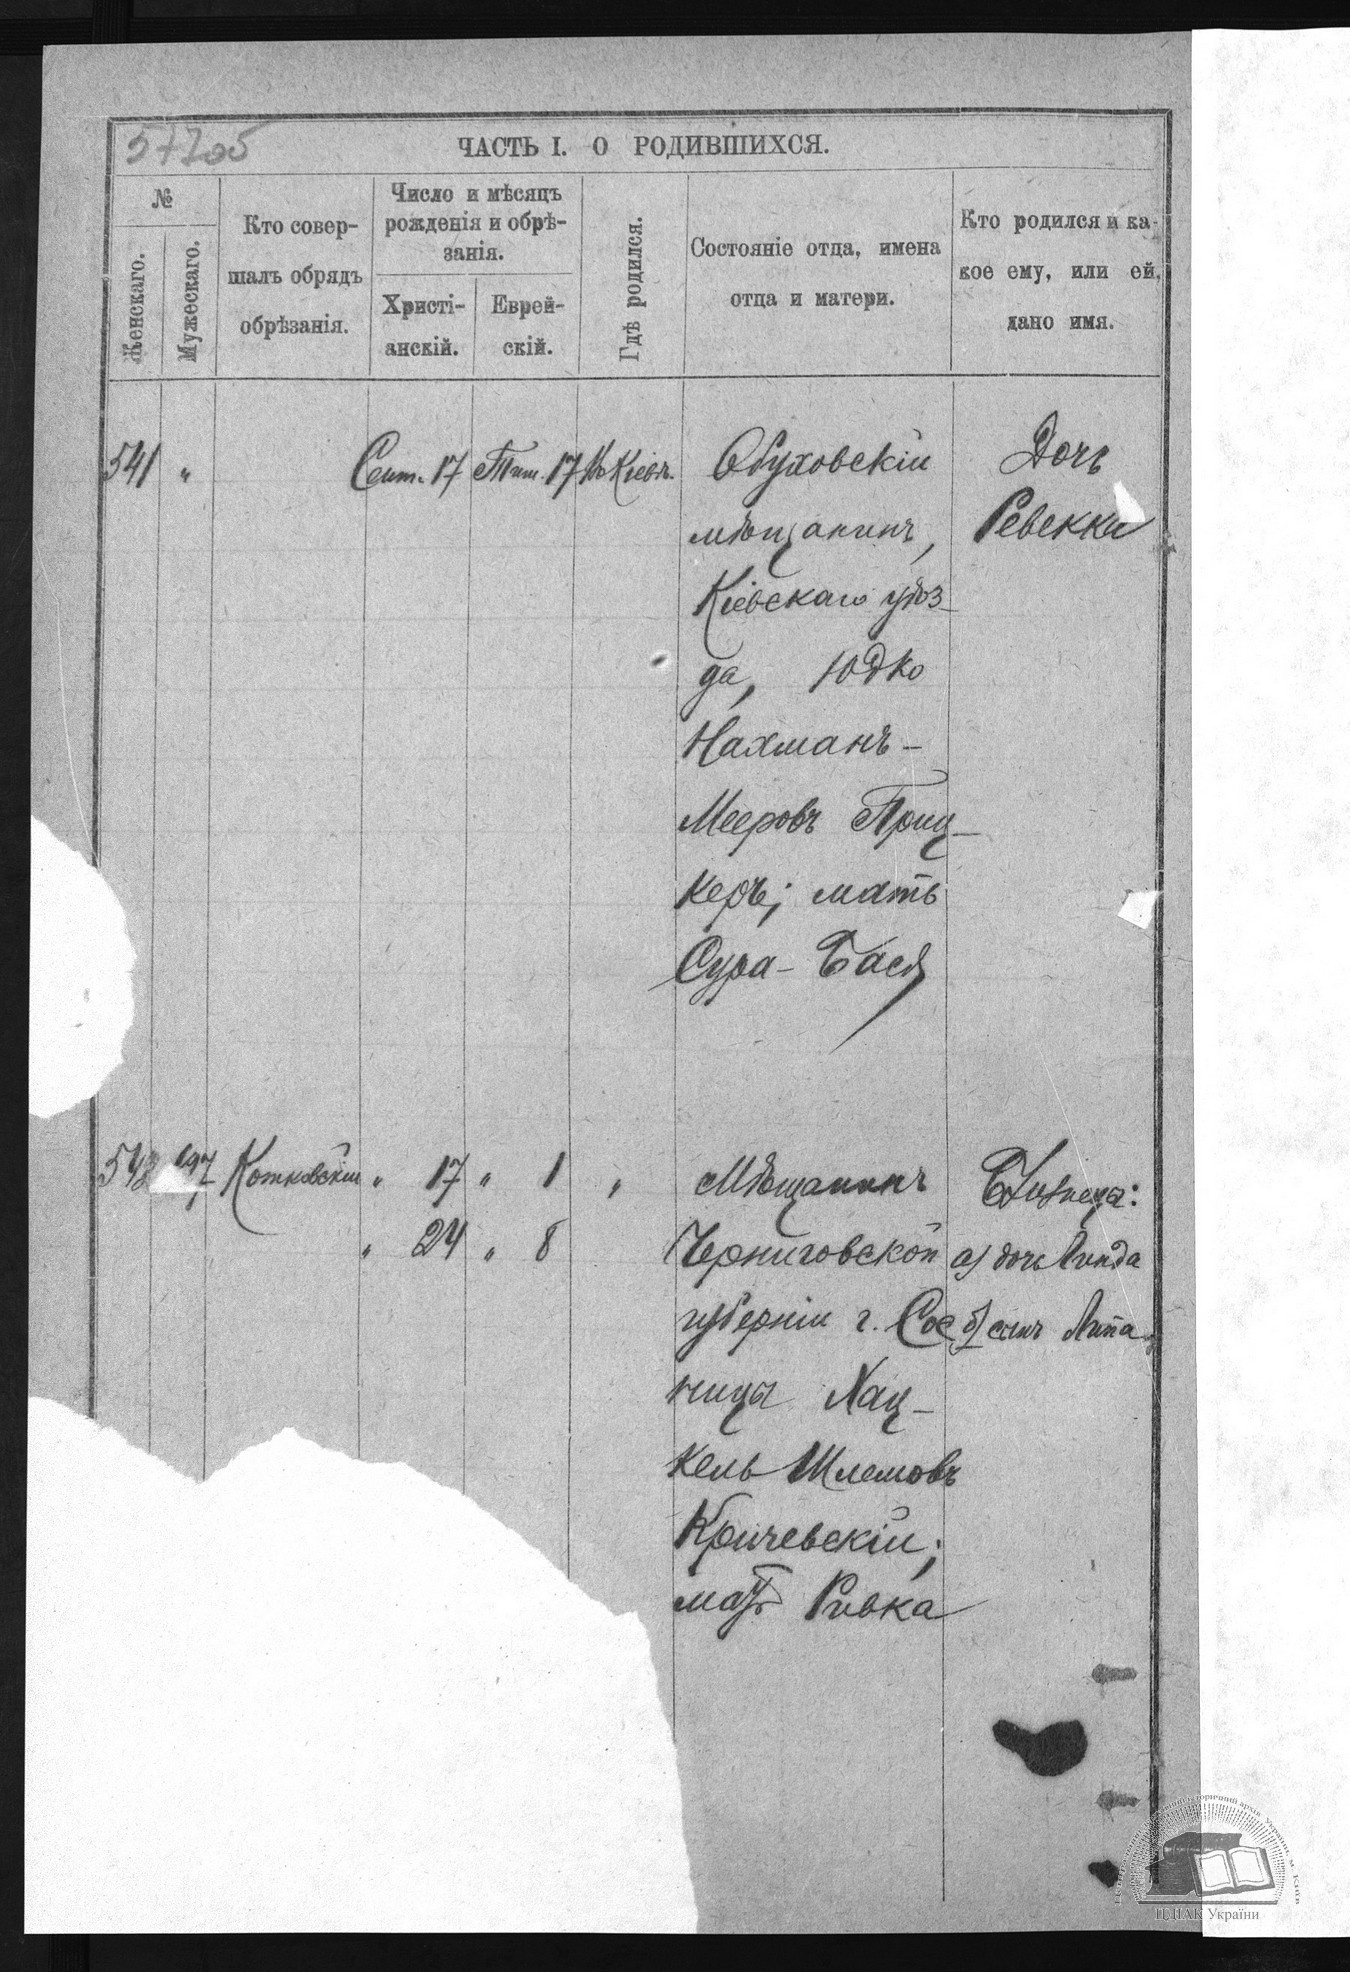 ЧАСТЬ I. О РОДИВШИХСЯ.
№
Женскаго.
Мужескаго.
Кто совер-
шалъ обрядъ
обрѣзанія.
Число и мѣсяцъ
рожденія и обрѣ-
занія.
Христі-
анскій.
Еврей-
скій.
Гдѣ родился.
Состояніе отца, имена
отца и матери.
Кто родился и ка-
кое ему, или ей,
дано имя.
541 " Сент. 17 Тиш. 17 Въ Кіевѣ.
Обуховскій
мѣщанинъ,
Кіевскаго уѣз-
да, Юдко
Нахманъ-
Мееровъ Приц-
керъ; мать
Сура-Бася
Дочь
Ревекка
Котковскій " 17 " 1 "
" 24 " 8
Мѣщанинъ
Черниговской
губерніи г. Сос
ницы Хац-
кель Шлемовъ
Кричевскій;
мать Ривка
Близнецы:
а) дочь
б) сынъ Липа
ЦДІАК України